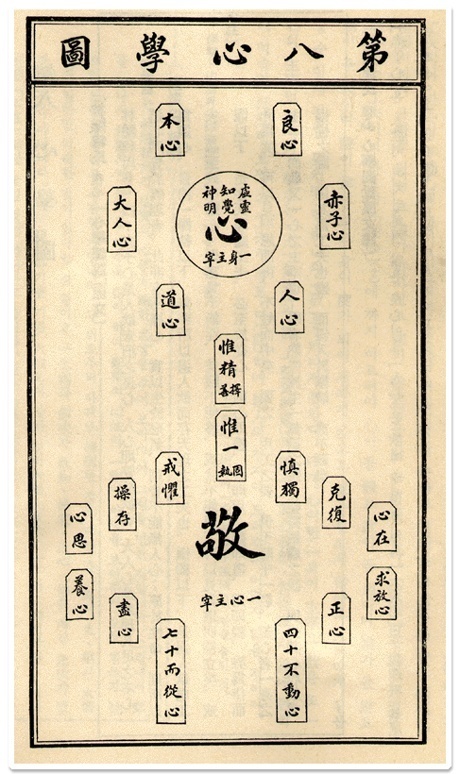 第八心學圖
良心
本心
虛靈
知覺
神明
心
一身主宰
赤子心
大人心
人心
道心
惟精
擇善
惟一
固執
慎獨
戒懼
克復
操存
心在
心思
敬
一心主宰
求放心
養心
正心
盡心
四十不動心
七十而從心